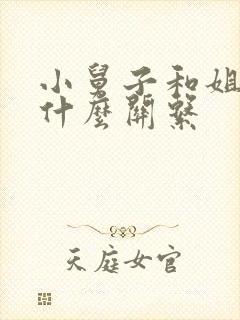 小舅子和姐
什麼關繫
天庭女官